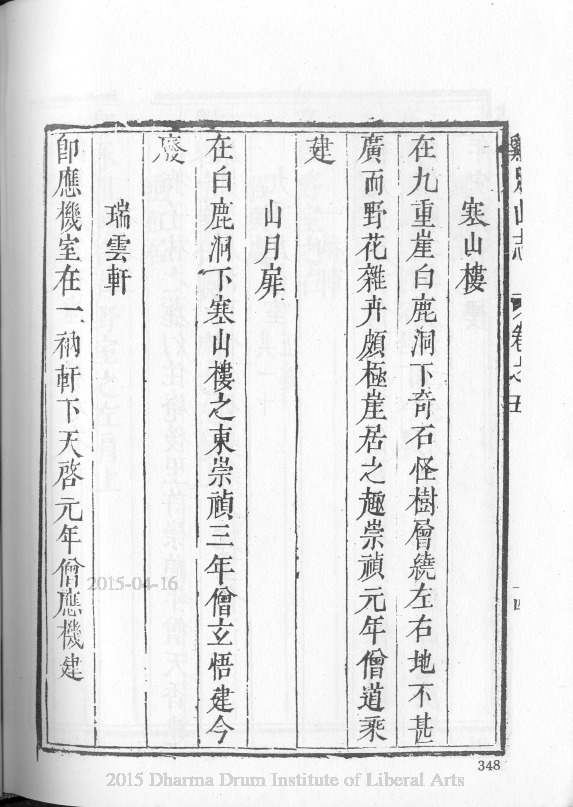 寨山樓
在九重崖白鹿洞下奇石怪樹層繞左右地不甚
廣而野花雜卉頗極崖居之趣崇禎元年僧道乘
建
山月扉
在白鹿洞下寨山樓之東崇禎三年僧玄悟建今
廢
瑞雲軒
卽應機室在一衲軒下天啓元年僧應機建
雞足山志 卷之五
四
2015-04-16
348
2015 Dharma Drum Institute of Liberal Arts